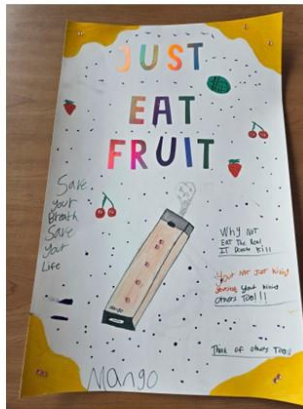 JUST
EAT
FRUIT
Save
your
Breath
Save
your
Life
Why not
EAT The Real
IT Doesn't Kill
Your not just killing
yourself your killing
others TOO!!!
Think of others Too!!
Mango